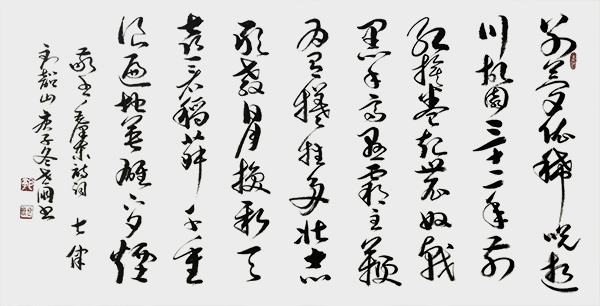 别夢依稀咒逝
川故園三十二年前
红旗卷起農奴戟
黑手高悬霸主鞭
为有犧牲多壮志
敢教日月换新天
喜看稻菽千重
浪遍地英雄下夕煙
敬书毛澤东詩词 七律
到韶山 庚子冬